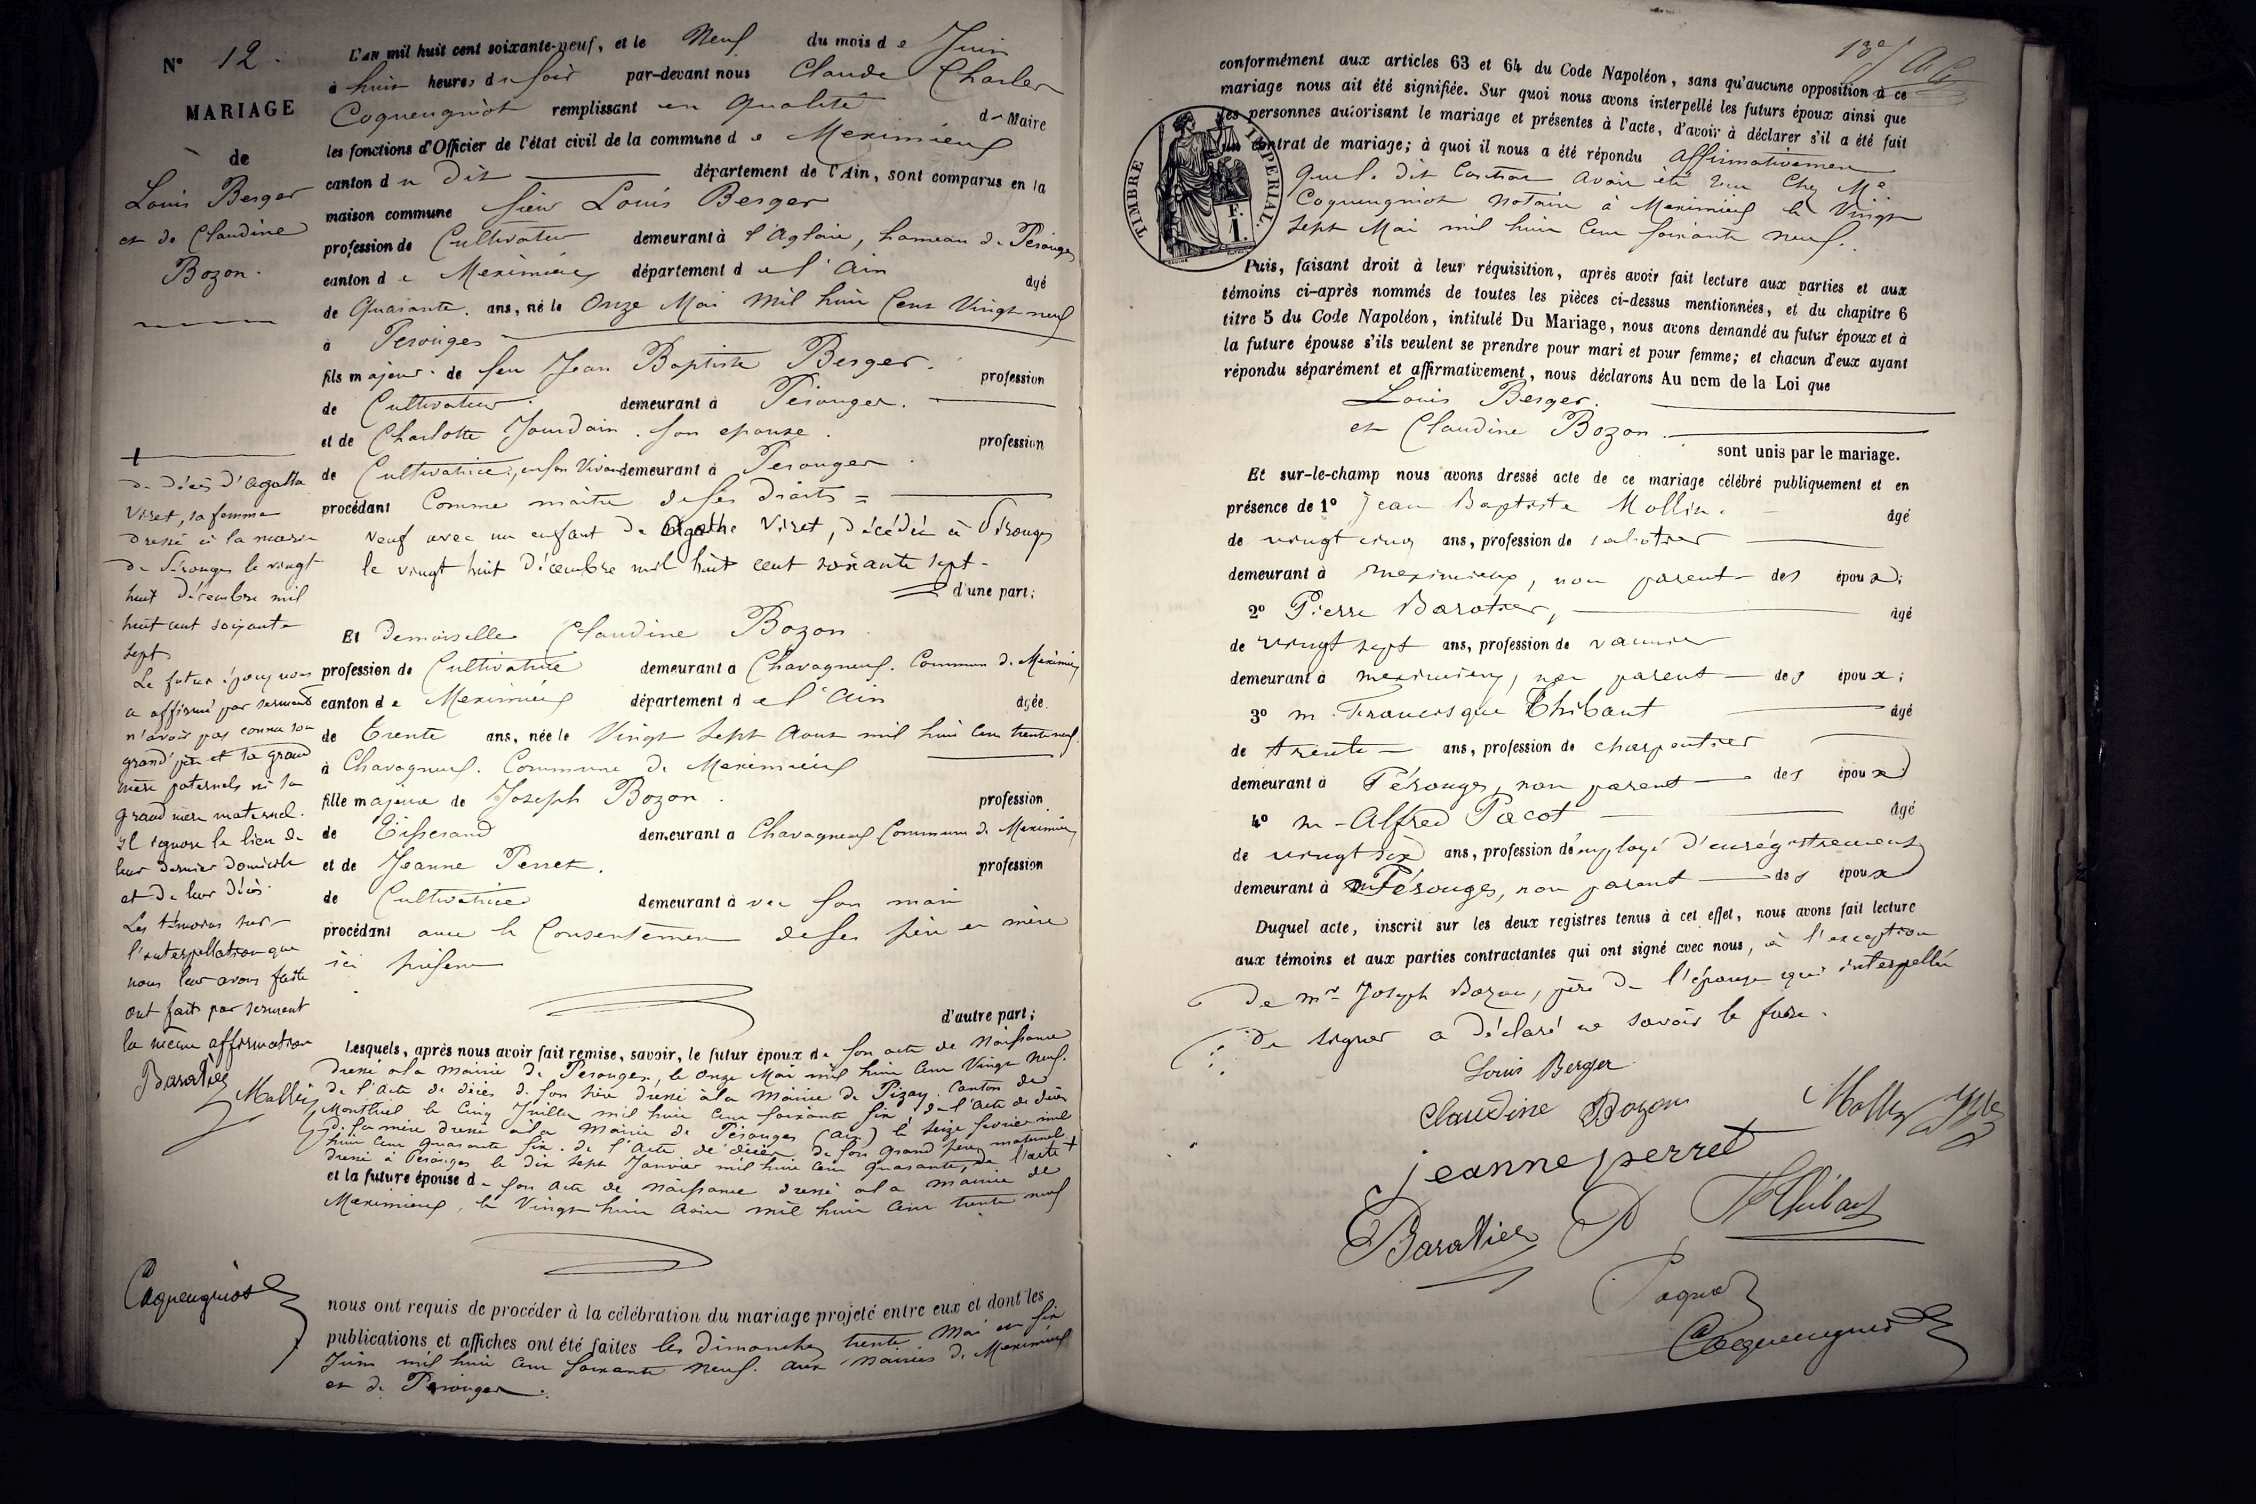 N° 12.
MARIAGE
de
Louis Berger
et de Claudine
Bozon.
L'an mil huit cent soixante-neuf, et le Neuf du mois de Juin
à huit heures du soir par-devant nous Claude Charles
Coqueugniot remplissant en qualité de Maire
les fonctions d'Officier de l'état civil de la commune de Meximieux
canton du dit département de l'Ain, sont comparus en la
maison commune sieur Louis Berger
profession de Cultivateur demeurant à l'Aglaie, hameau de Pérouges
canton de Meximieux département de l'Ain âgé
de Quarante ans, né le Onze Mai mil huit Cent Vingt neuf
à Perouges
fils majeur de feu Jean Baptiste Berger. profession
de Cultivateur. demeurant à Pérouges.
et de Charlotte Jourdain. son epouse. profession
de Cultivatrice, en son Vivant demeurant à Perouges.
procédant Comme maître de ses droits =
Veuf avec un enfant de Agathe Viret, décédée à Pérouges
le vingt huit Décembre mil huit cent soixante sept -
d'une part;
Et Demoiselle Claudine Bozon
profession de Cultivatrice demeurant à Chavagneux. Commune de Meximieux
canton de Meximieux département de l'Ain âgée
de Trente ans, née le Vingt Sept Aout mil huit Cent trente neuf.
à Chavagneux. Commune de Meximieux
fille majeure de Joseph Bozon. profession
de Tisserand demeurant à Chavagneux Commune de Meximieux
et de Jeanne Perret. profession
de Cultivatrice demeurant à vec son mari
procédant avec le Consentement de ses père et mère
ici présent
d'autre part;
Lesquels, après nous avoir fait remise, savoir, le futur époux de son acte de Naissance
dressé à la mairie de Perouges, le Onze Mai mil huit Cent Vingt Neuf.
de l'acte de décès de son père dressé à la Mairie de Pizay. Canton de
Montluel le Cinq Juillet mil huit Cent soixante six, de l'acte de décès
de sa mère dressé à la Mairie de Pérouges (Ain) le seize fevrier mil
huit Cent quarante six. de l'acte de décès de son grand père maternel
dressé à Pérouges le dix sept Janvier mil huit Cent quarante, de l'acte +
et la future épouse de son acte de Naissance dressé à la mairie de
Meximieux, le Vingt huit Aout mil huit Cent trente neuf
nous ont requis de procéder à la célébration du mariage projeté entre eux et dont les
publications et affiches ont été faites les dimanches trente Mai et six
Juin mil huit Cent soixante neuf. aux Mairies de Meximieux
et de Perouges.
+
de décès d'Agatha
Viret, sa femme
dressé à la mairie
de Pérouges le vingt
huit décembre mil
huit cent soixante
sept
Le futur époux nous
a affirmé par serment
n'avoir pas connu son
grand père et sa grand
mère paternels ni sa
grand mère maternel.
Il ignore le lieu de
leur dernier domicile
et de leur décès.
Les témoins sur
l'interpellation que
nous leur avons faite
ont fait par serment
la même affirmation
Baratier
Mollin
Coqueugniot
conformément aux articles 63 et 64 du Code Napoléon, sans qu'aucune opposition à ce
mariage nous ait été signifiée. Sur quoi nous avons interpellé les futurs époux ainsi que
les personnes autorisant le mariage et présentes à l'acte, d'avoir à déclarer s'il a été fait
un contrat de mariage; à quoi il nous a été répondu affirmativement
que le dit Contrat avait été reçu Chez Me
Coqueugniot Notaire à Meximieux le Vingt
Sept Mai mil huit Cent soixante neuf.
TIMBRE IMPERIAL
F.
1.
Puis, faisant droit à leur réquisition, après avoir fait lecture aux parties et aux
témoins ci-après nommés de toutes les pièces ci-dessus mentionnées, et du chapitre 6
titre 5 du Code Napoléon, intitulé Du Mariage, nous avons demandé au futur époux et à
la future épouse s'ils veulent se prendre pour mari et pour femme; et chacun d'eux ayant
répondu séparément et affirmativement, nous déclarons Au nom de la Loi que
Louis Berger.
et Claudine Bozon.
sont unis par le mariage.
Et sur-le-champ nous avons dressé acte de ce mariage célébré publiquement et en
présence de 1° Jean Baptiste Mollin. âgé
de vingt cinq ans, profession de sabotier
demeurant à meximieux, non parent des époux;
2° Pierre Baratier, âgé
de vingt sept ans, profession de vannier
demeurant à meximieux, non parent des époux;
3° m. Francisque Thibaut âgé
de trente ans, profession de charpentier
demeurant à Pérouges, non parent des époux
4° m. Alfred Pacot âgé
de vingt six ans, profession de employé d'enrégistrement
demeurant à Pérouges, non parent des époux
Duquel acte, inscrit sur les deux registres tenus à cet effet, nous avons fait lecture
aux témoins et aux parties contractantes qui ont signé avec nous, à l'exception
de mr Joseph Bozon, père de l'épouse qui interpellé
de signer a déclaré ne savoir le faire.
Louis Berger
Claudine Bozon
Mollin
jeanne perret
Baratier P
Thibaut
Coqueugniot